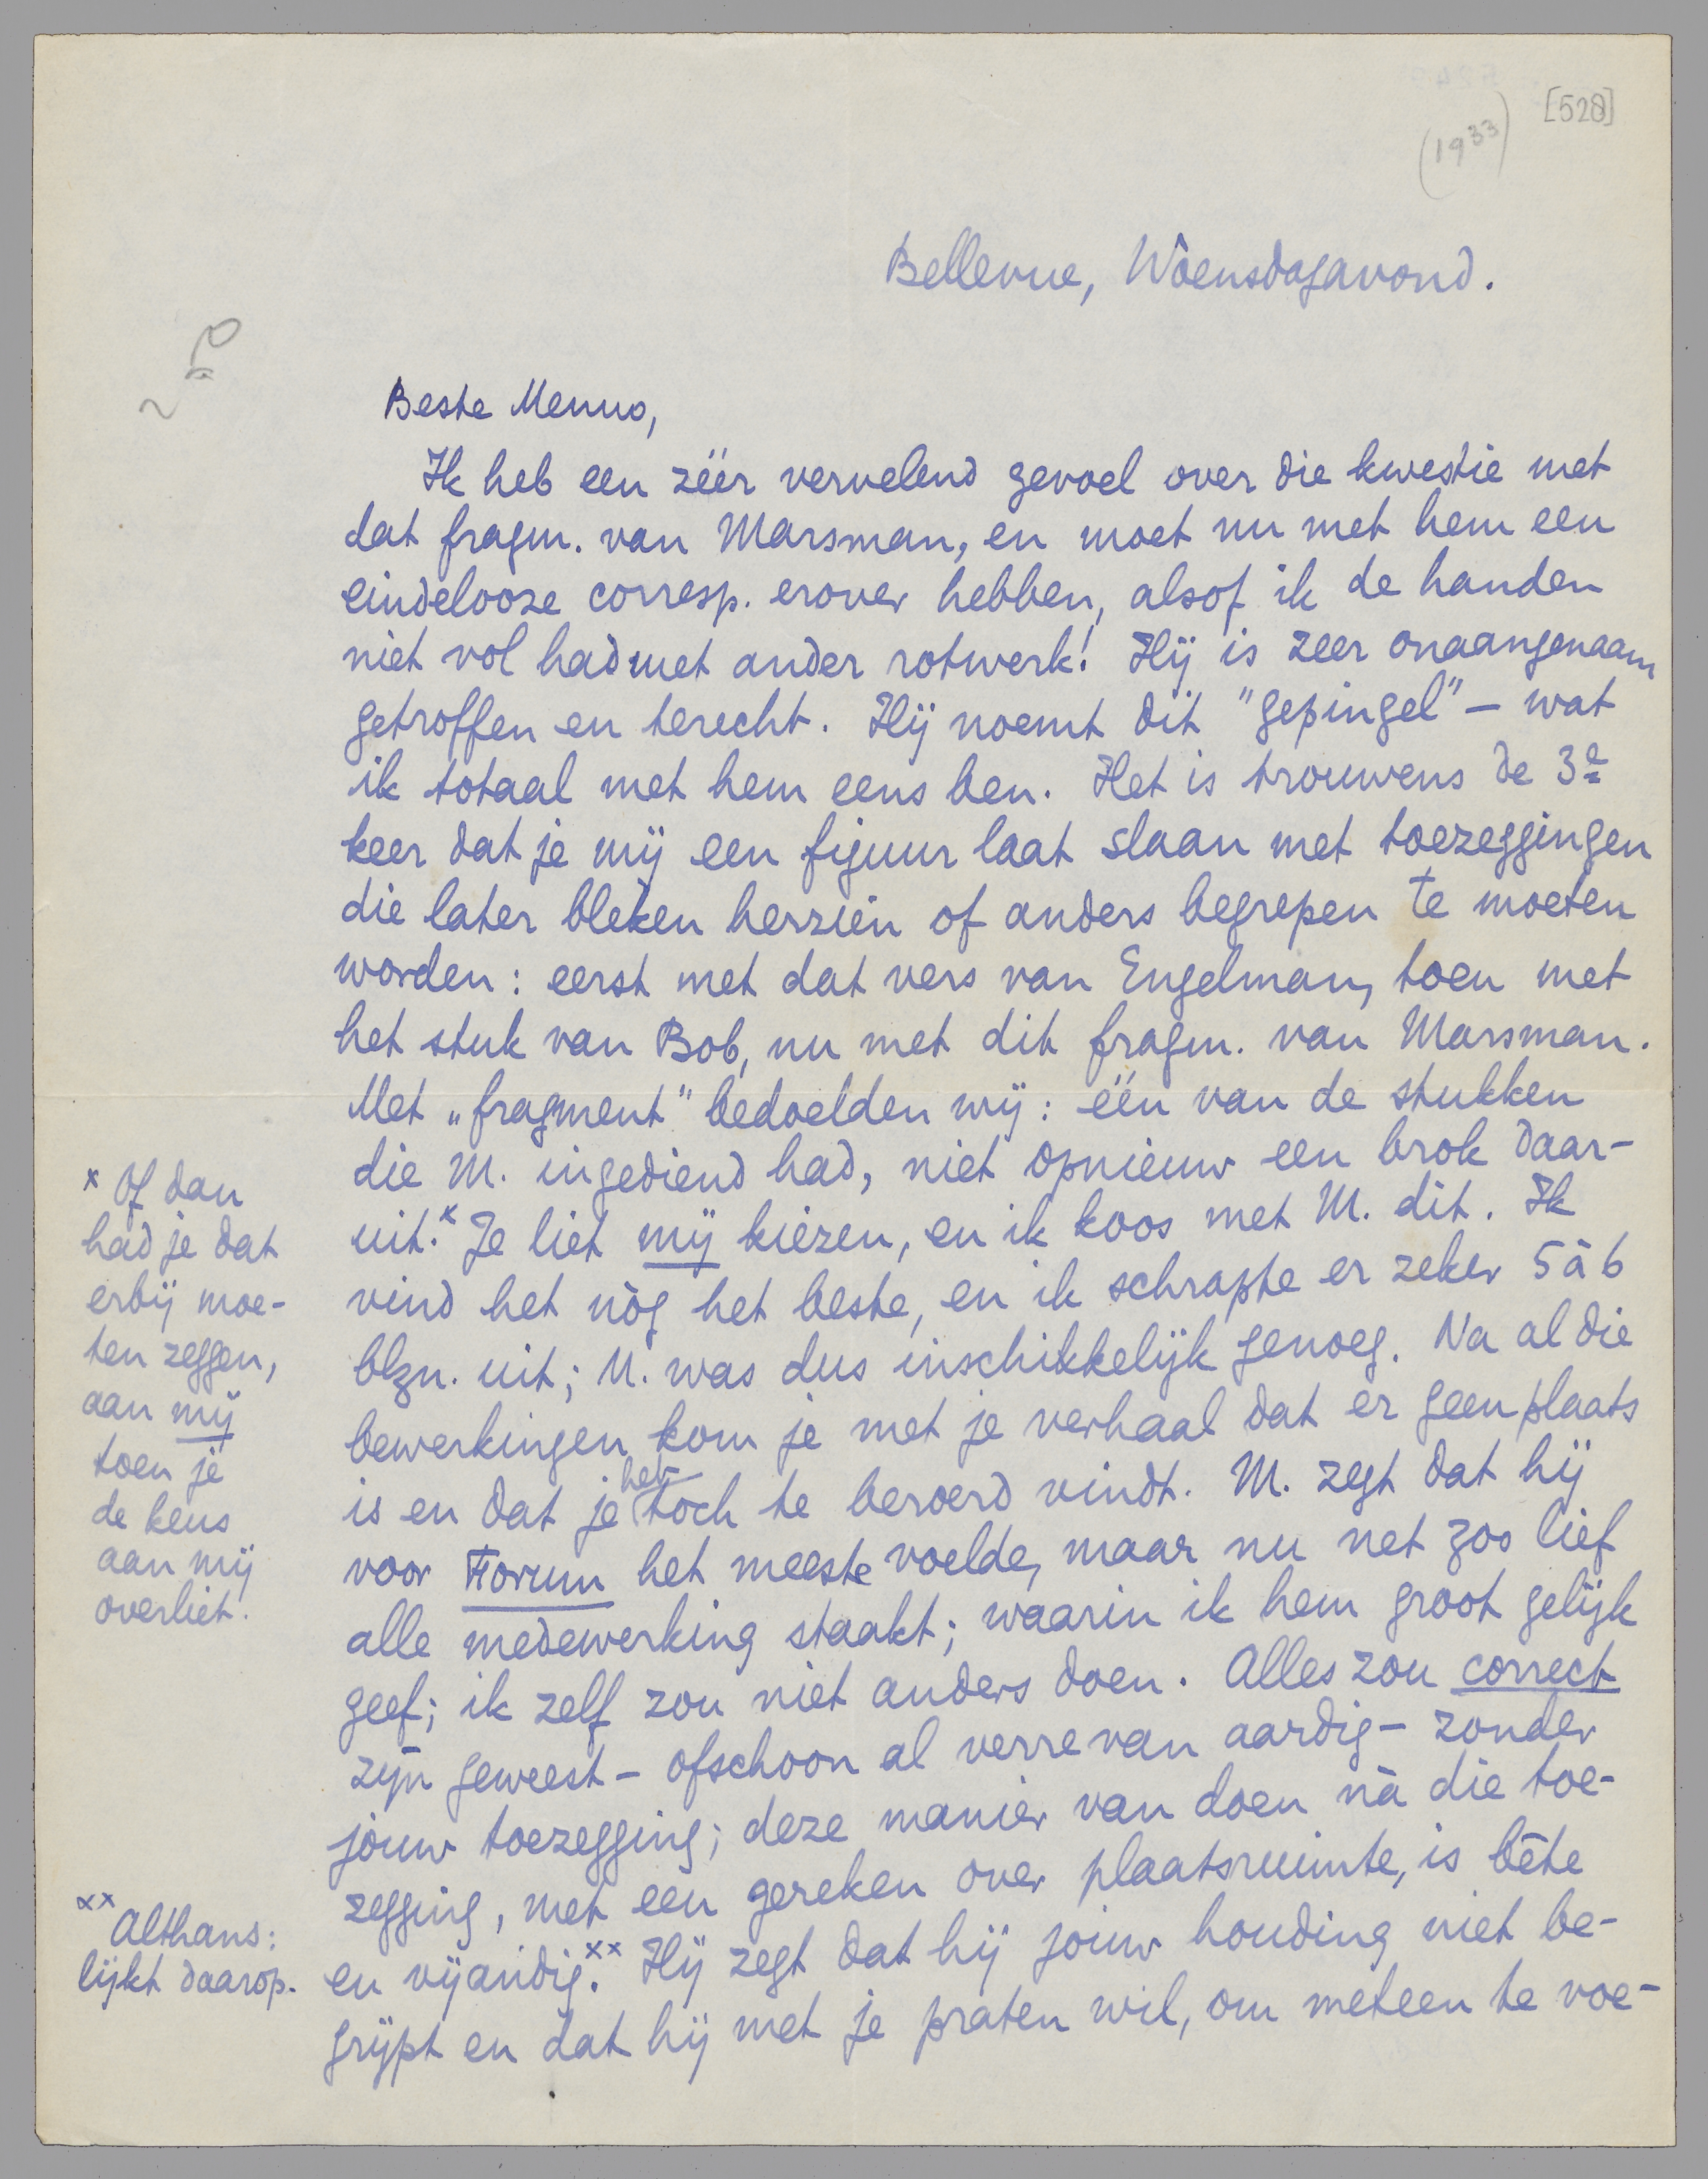 [528]
(1933)
Bellevue, Woensdagavond.
Beste Menno,
Ik heb een zéér vervelend gevoel over die kwestie met
dat fragm. van Marsman, en moet nu met hem een
eindelooze corresp. erover hebben, alsof ik de handen
niet vol had met ander rotwerk! Hij is zeer onaangenaam
getroffen en terecht. Hij noemt dit "gepingel" – wat
ik totaal met hem eens ben. Het is trouwens de 3e
keer dat je mij een figuur laat slaan met toezeggingen
die later bleken herzien of anders begrepen te moeten
worden: eerst met dat vers van Engelman, toen met
het stuk van Bob, nu met dit fragm. van Marsman.
Met „fragment" bedoelden wij: één van de stukken
die M. ingediend had, niet opnieuw een brok daar-
uit.x Je liet mij kiezen, en ik koos met M. dit. Ik
vind het nòg het beste, en ik schrapte er zeker 5 à 6
blzn. uit; M. was dus inschikkelijk genoeg. Na al die
bewerkingen kom je met je verhaal dat er geen plaats
is en dat je het toch te beroerd vindt. M. zegt dat hij
voor Forum het meeste voelde, maar nu net zoo lief
alle medewerking staakt; waarin ik hem groot gelijk
geef; ik zelf zou niet anders doen. Alles zou correct
zijn geweest – ofschoon al verre van aardig – zonder
jouw toezegging; deze manier van doen nà die toe-
zegging, met een gereken over plaatsruimte, is bête
en vijandig.xx Hij zegt dat hij jouw houding niet be-
grijpt en dat hij met je praten wil, om meteen te voe-
x Of dan
had je dat
erbij moe-
ten zeggen,
aan mij
toen je
de keus
aan mij
overliet.
xx Althans:
lijkt daarop.